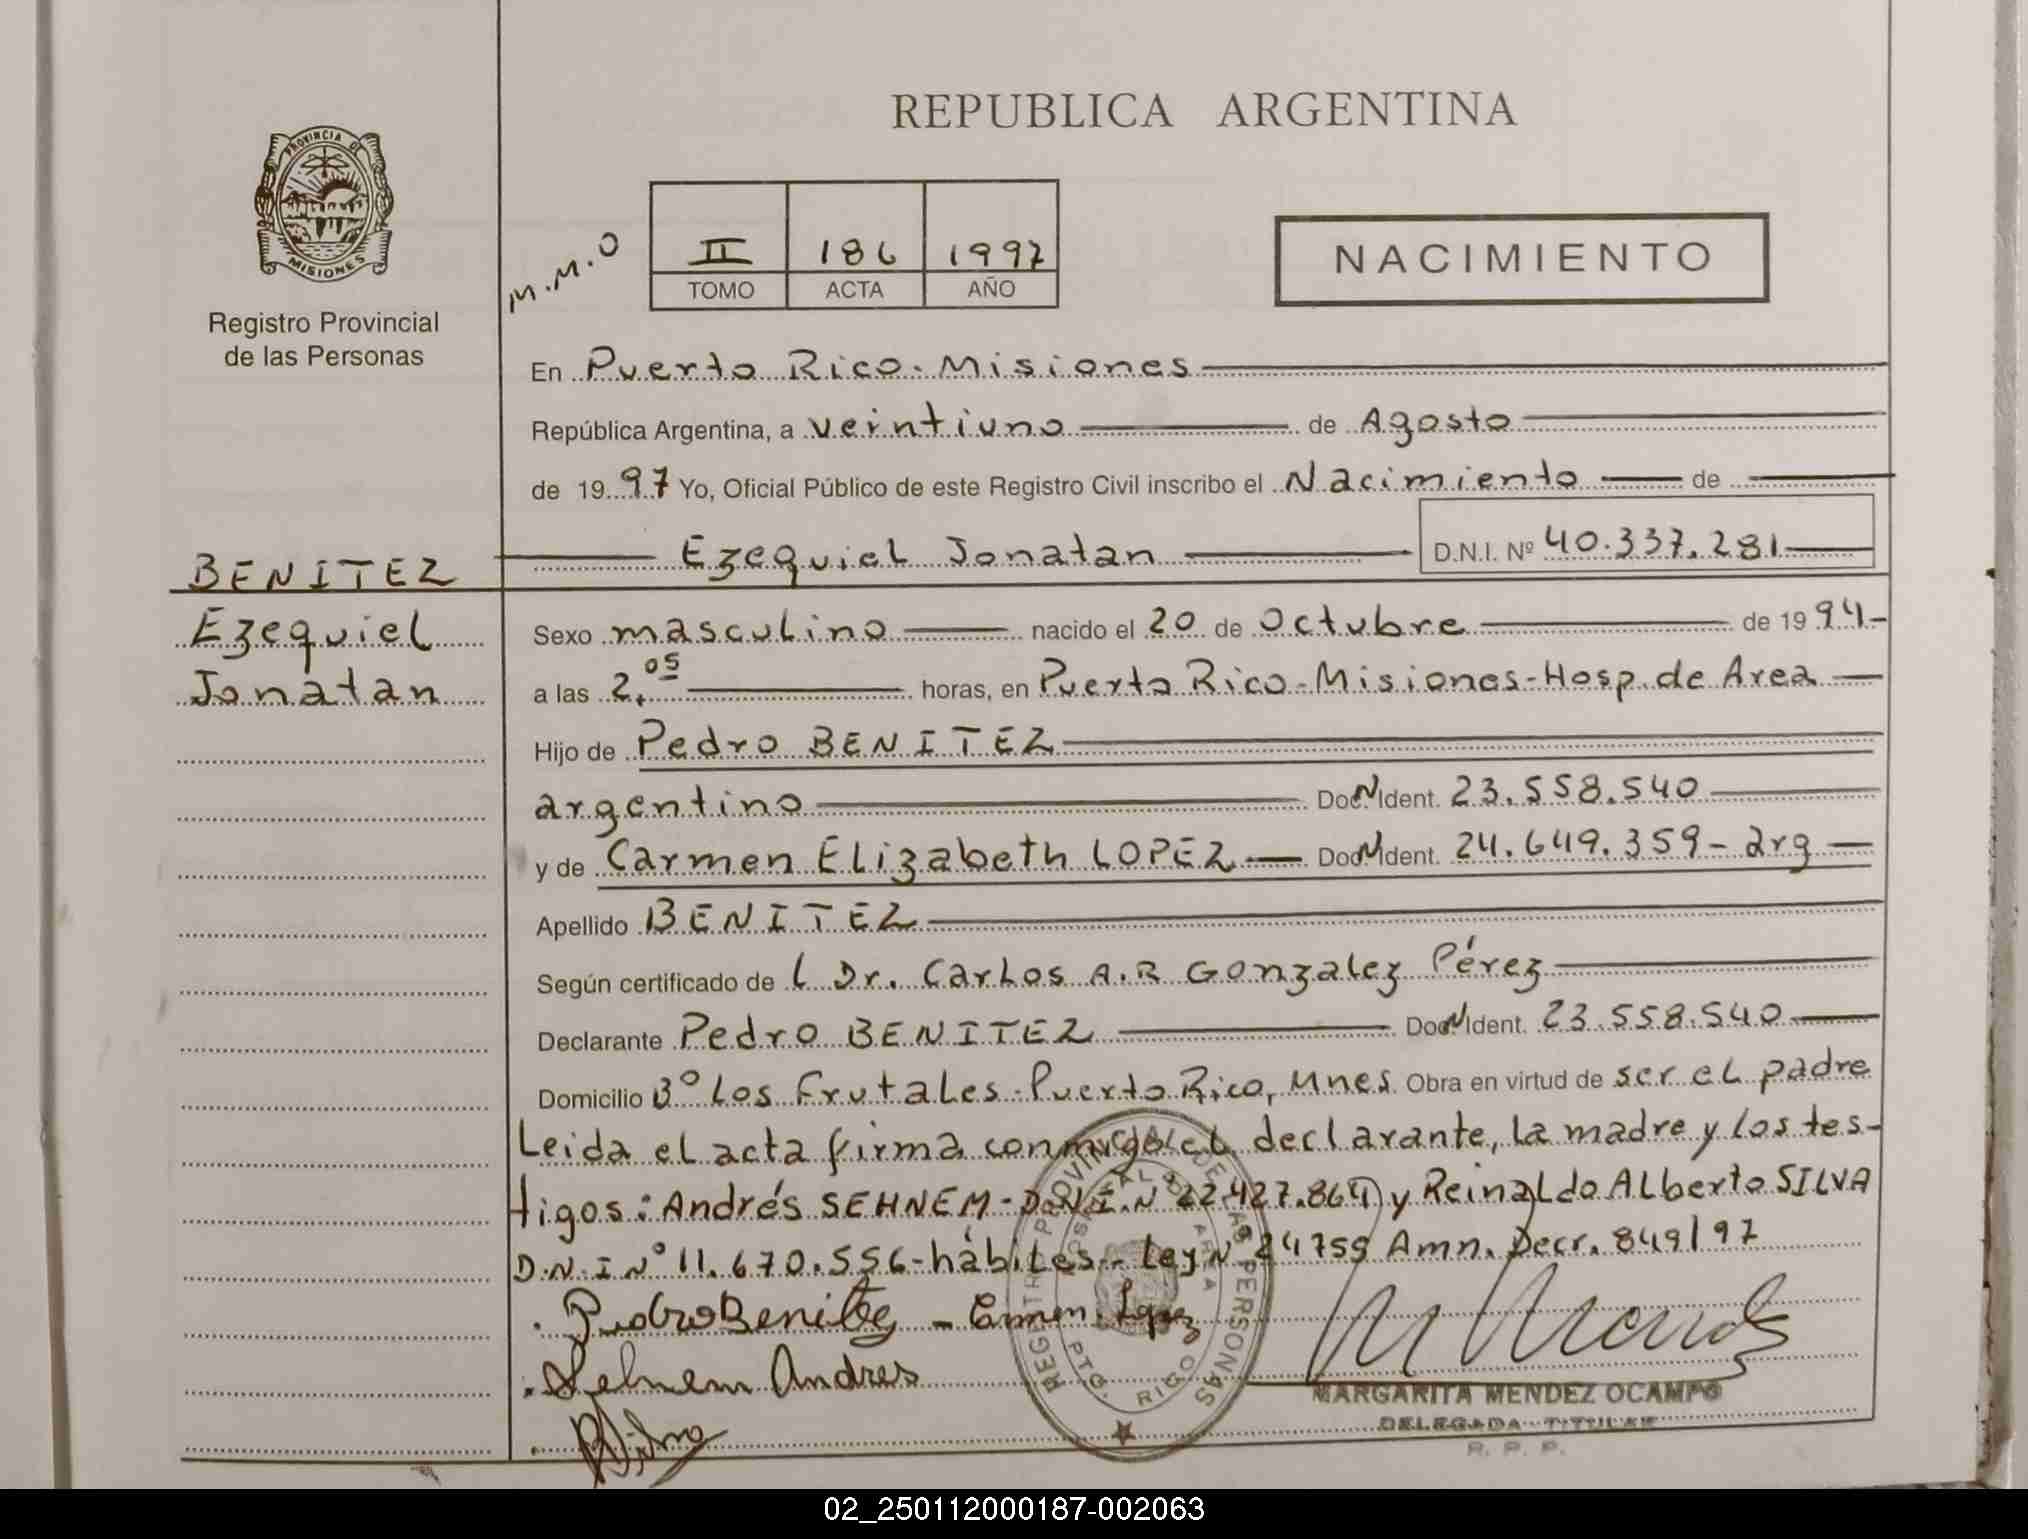 REPUBLICA ARGENTINA
PROVINCIA DE
MISIONES
Registro Provincial
de las Personas
M.M.O
II 186 1997
TOMO ACTA AÑO
NACIMIENTO
En Puerto Rico. Misiones
República Argentina, a veintiuno de Agosto
de 1997 Yo, Oficial Público de este Registro Civil inscribo el Nacimiento de
Ezequiel Jonatan D.N.I. Nº 40.337.281
BENITEZ
Ezequiel
Jonatan
Sexo masculino nacido el 20 de Octubre de 1994-
a las 2.05 horas, en Puerto Rico-Misiones-Hosp. de Area
Hijo de Pedro BENITEZ
argentino Doc. Ident. 23.558.540
y de Carmen Elizabeth LOPEZ Doc. Ident. 24.649.359- arg
Apellido BENITEZ
Según certificado de l Dr. Carlos A.R Gonzalez Pérez
Declarante Pedro BENITEZ Doc. Ident. 23.558.540
Domicilio Bº Los Frutales-Puerto Rico, Mnes. Obra en virtud de ser el padre
Leida el acta firma conmigo el declarante, la madre y los tes-
tigos: Andrés SEHNEM-D.N.I.N 22.427.864 y Reinaldo Alberto SILVA
D.N.I Nº 11.670.556-hábiles- Ley Nº 24755 Amn. Decr. 849/97
Pedro Benitez - Carmen Lopez
Sehnem Andres
REGISTRO PROVINCIAL DE LAS PERSONAS
HOSPITAL DE AREA
PTO. RICO
MARGARITA MENDEZ OCAMPO
DELEGADA TITULAR
R. P. P.
02_250112000187-002063